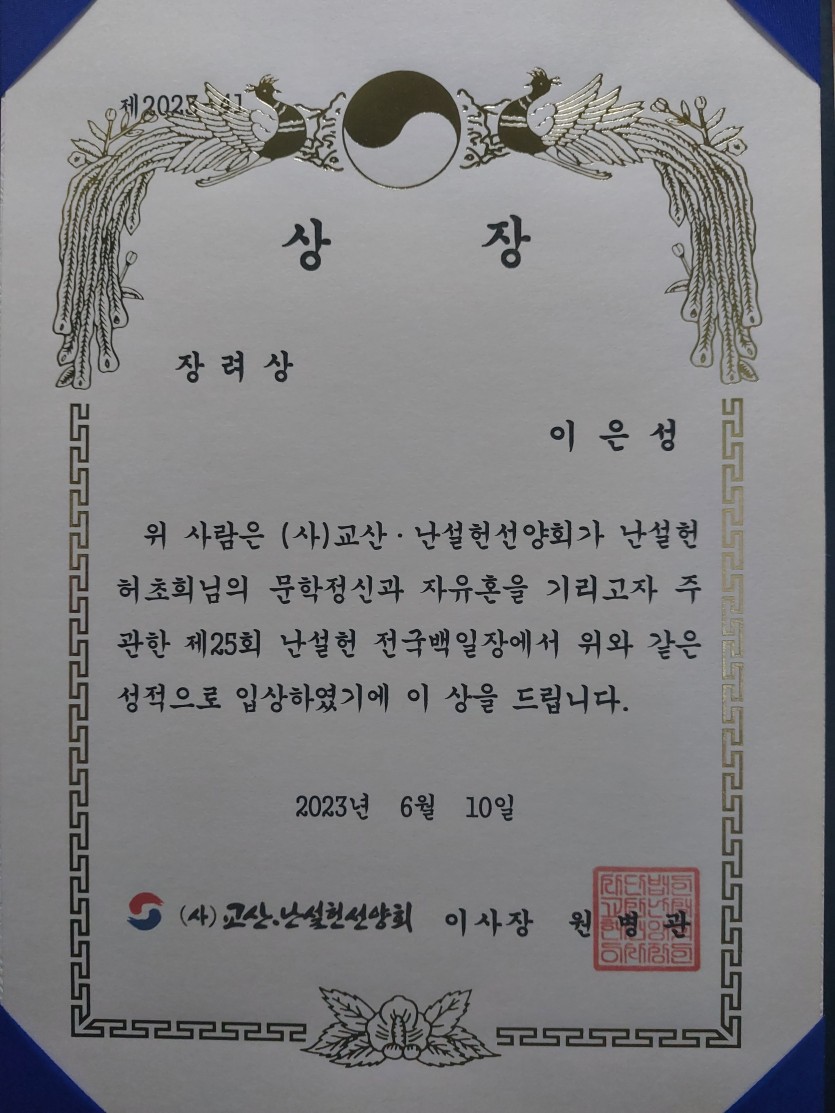 제2023-41
상 장
장 려 상
이 은 성
위 사람은 (사)교산·난설헌선양회가 난설헌
허초희님의 문학정신과 자유혼을 기리고자 주
관한 제25회 난설헌 전국백일장에서 위와 같은
성적으로 입상하였기에 이 상을 드립니다.
2023년 6월 10일
(사)교산.난설헌선양회 이사장 원 병 관